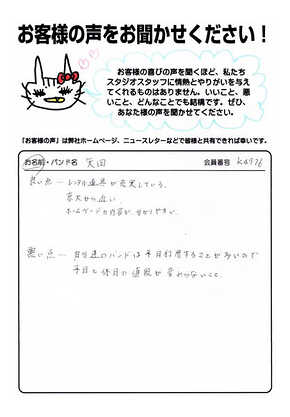 お客様の声をお聞かせください！
お客様の喜びの声を聞くほど、私たち
スタジオスタッフに情熱とやりがいを与え
てくれるものはありません。いいこと、悪
いこと、どんなことでも結構です。ぜひ、
あなた様の声を聞かせてください。
「お客様の声」は弊社ホームページ、ニュースレターなどで皆様と共有できれば幸いです。
お名前・バンド名 矢田 会員番号
良い点 ― レンタル道具が充実している。
京大から近い。
ホームページの内容が分かりやすい。
悪い点 ― 自分達のバンドは平日利用することが多いので
平日と休日の値段が変わらないこと。